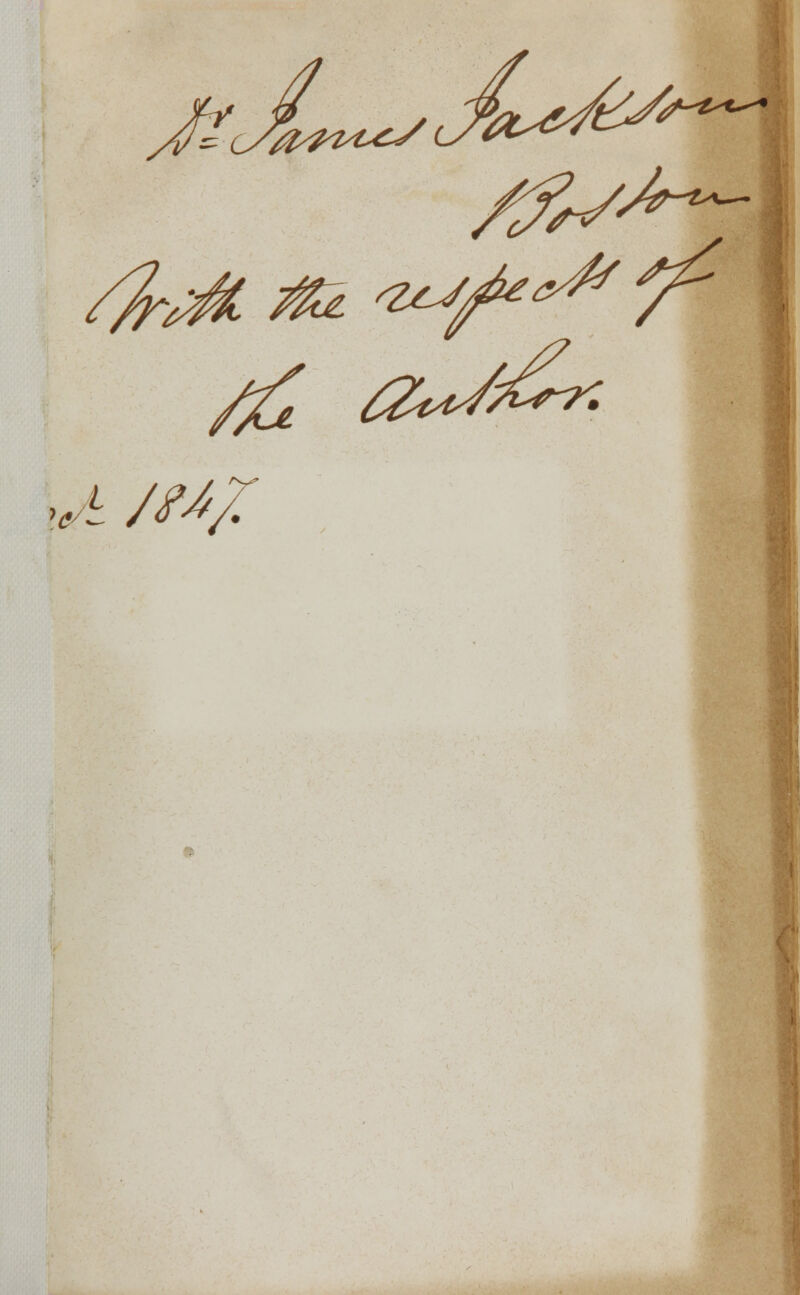 Dr James Jackson
Boston
With the respects of
the Author.
1847.